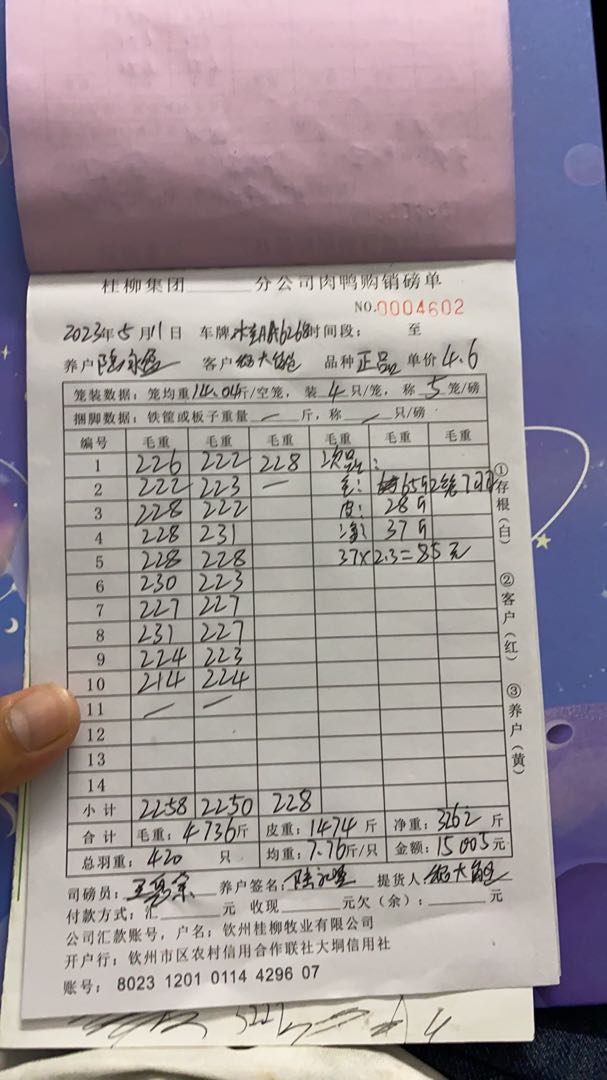 桂柳集团______分公司肉鸭购销磅单
NO.0004602
2023年5月11日 车牌 A6268 时间段： 至
养户 陆永 客户 大 品种 正品 单价 4.6
笼装数据：笼均重 14.04斤/空笼，装 4 只/笼，称 5 笼/磅
捆脚数据：铁筐或板子重量 — 斤，称 — 只/磅
编号 毛重 毛重 毛重 毛重 毛重 毛重
1 226 222 228 次品：
2 222 223 — 毛： 65斤 2笼7只
3 228 222 皮： 28斤
4 228 231 净： 37斤
5 228 228 37×2.3=85元
6 230 223
7 227 227
8 231 227
9 224 223
10 214 224
11 — —
12
13
14
小计 2258 2250 228
合计 毛重：4736斤 皮重：1474斤 净重：3262斤
总羽重：420 只 均重：7.76斤/只 金额：15005元
司磅员：王 养户签名：陆永 提货人 大
付款方式：汇______元 收现______元欠（余）：______元
公司汇款账号，户名：钦州桂柳牧业有限公司
开户行：钦州市区农村信用合作联社大垌信用社
账号：8023 1201 0114 4296 07
①存根（白）
②客户（红）
③养户（黄）